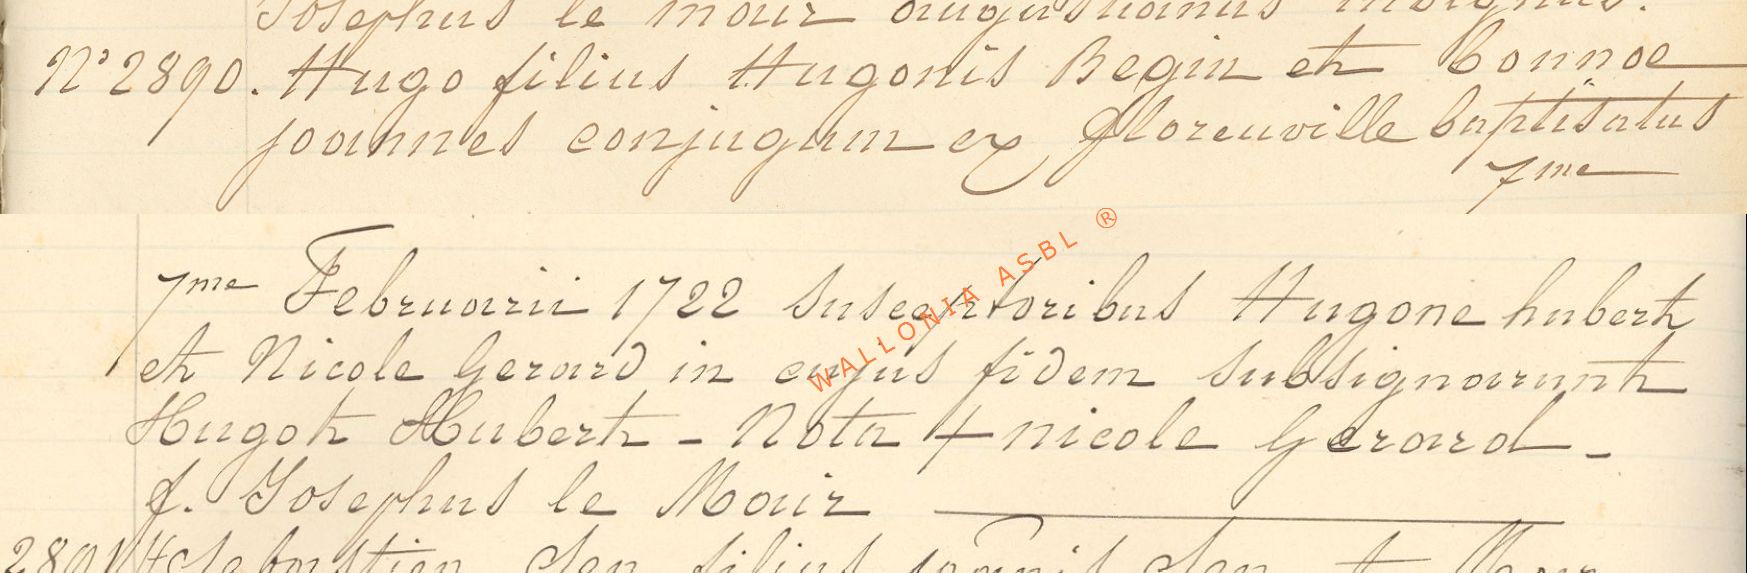 Josephus le Mair augustianus indignus.
N° 2890. Hugo filius Hugonis Begin et Connoe
joannes conjugum ex florenville baptisatus
7me
7me Februarii 1722 suseeptoribus Hugone hubert
et Nicole Gerard in cujus fidem subsignarunt
Hugot Hubert - Nota + nicole Gerard -
f. Josephus le Mair
2891 filius
WALLONIA ASBL ®